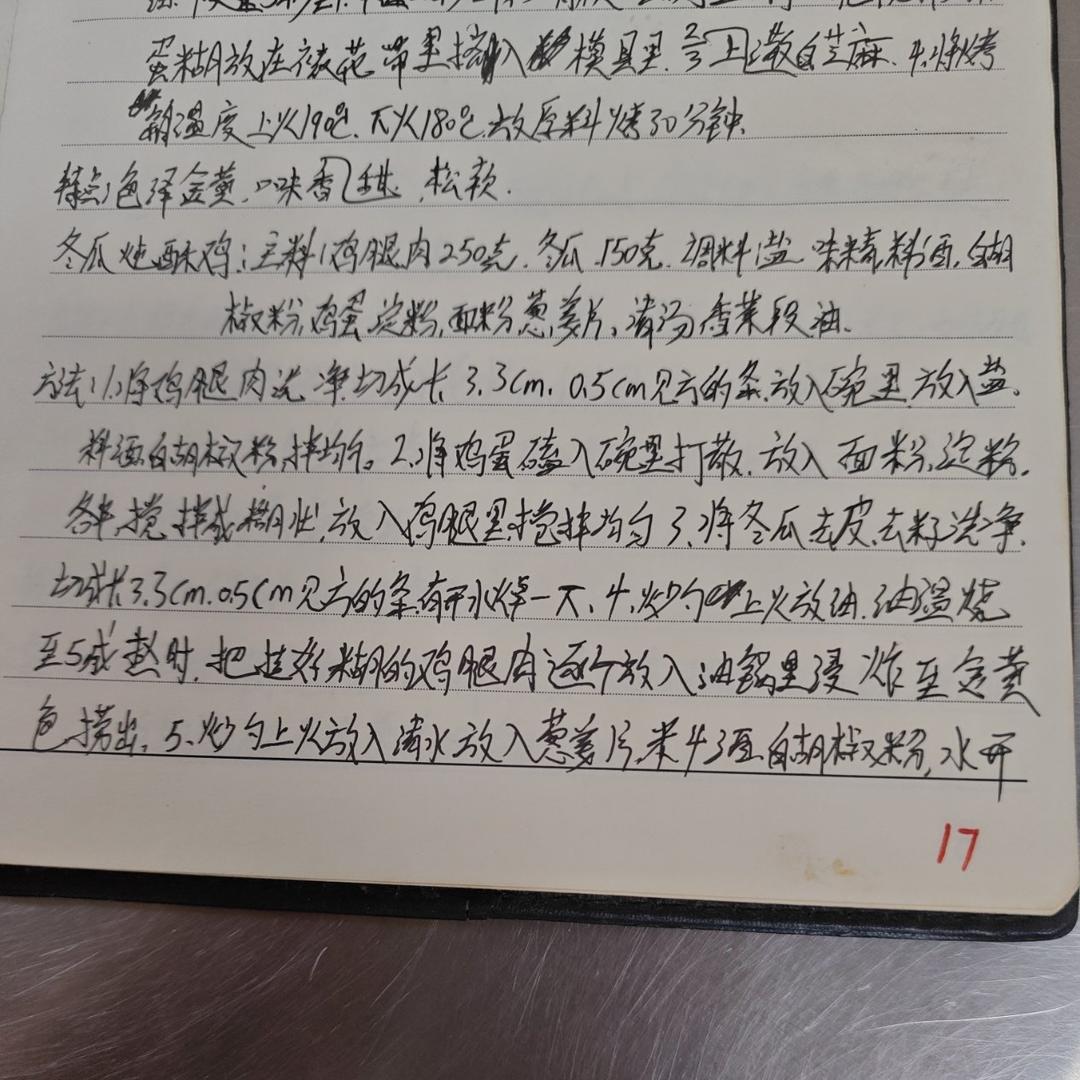 蛋糊放在裱花带里挤入模具里.上撒白芝麻.4.将烤
箱温度上火190℃.下火180℃.放原料烤30分钟.
特点:色泽金黄.口味香甜.松软.
冬瓜炖酥鸡:主料:鸡腿肉250克.冬瓜.150克.调料:盐.味精.料酒.白胡
椒粉.鸡蛋.淀粉.面粉.葱姜片.清汤.香菜段.油.
方法:1.将鸡腿肉洗净.切成长3.3cm.0.5cm见方的条.放入碗里.放入盐.
料酒.白胡椒粉.拌均匀。2.将鸡蛋磕入碗里打散.放入面粉.淀粉.
各半.搅拌成糊状.放入鸡腿里.搅拌均匀3.将冬瓜去皮.去籽.洗净.
切成长3.3cm.0.5cm见方的条.有开水焯一下.4.炒勺上火放油.油温烧
至5成热时.把挂好糊的鸡腿肉逐个放入油锅里浸炸至金黄
色捞出.5.炒勺上火放入清水放入葱姜片.料酒.白胡椒粉,水开
17